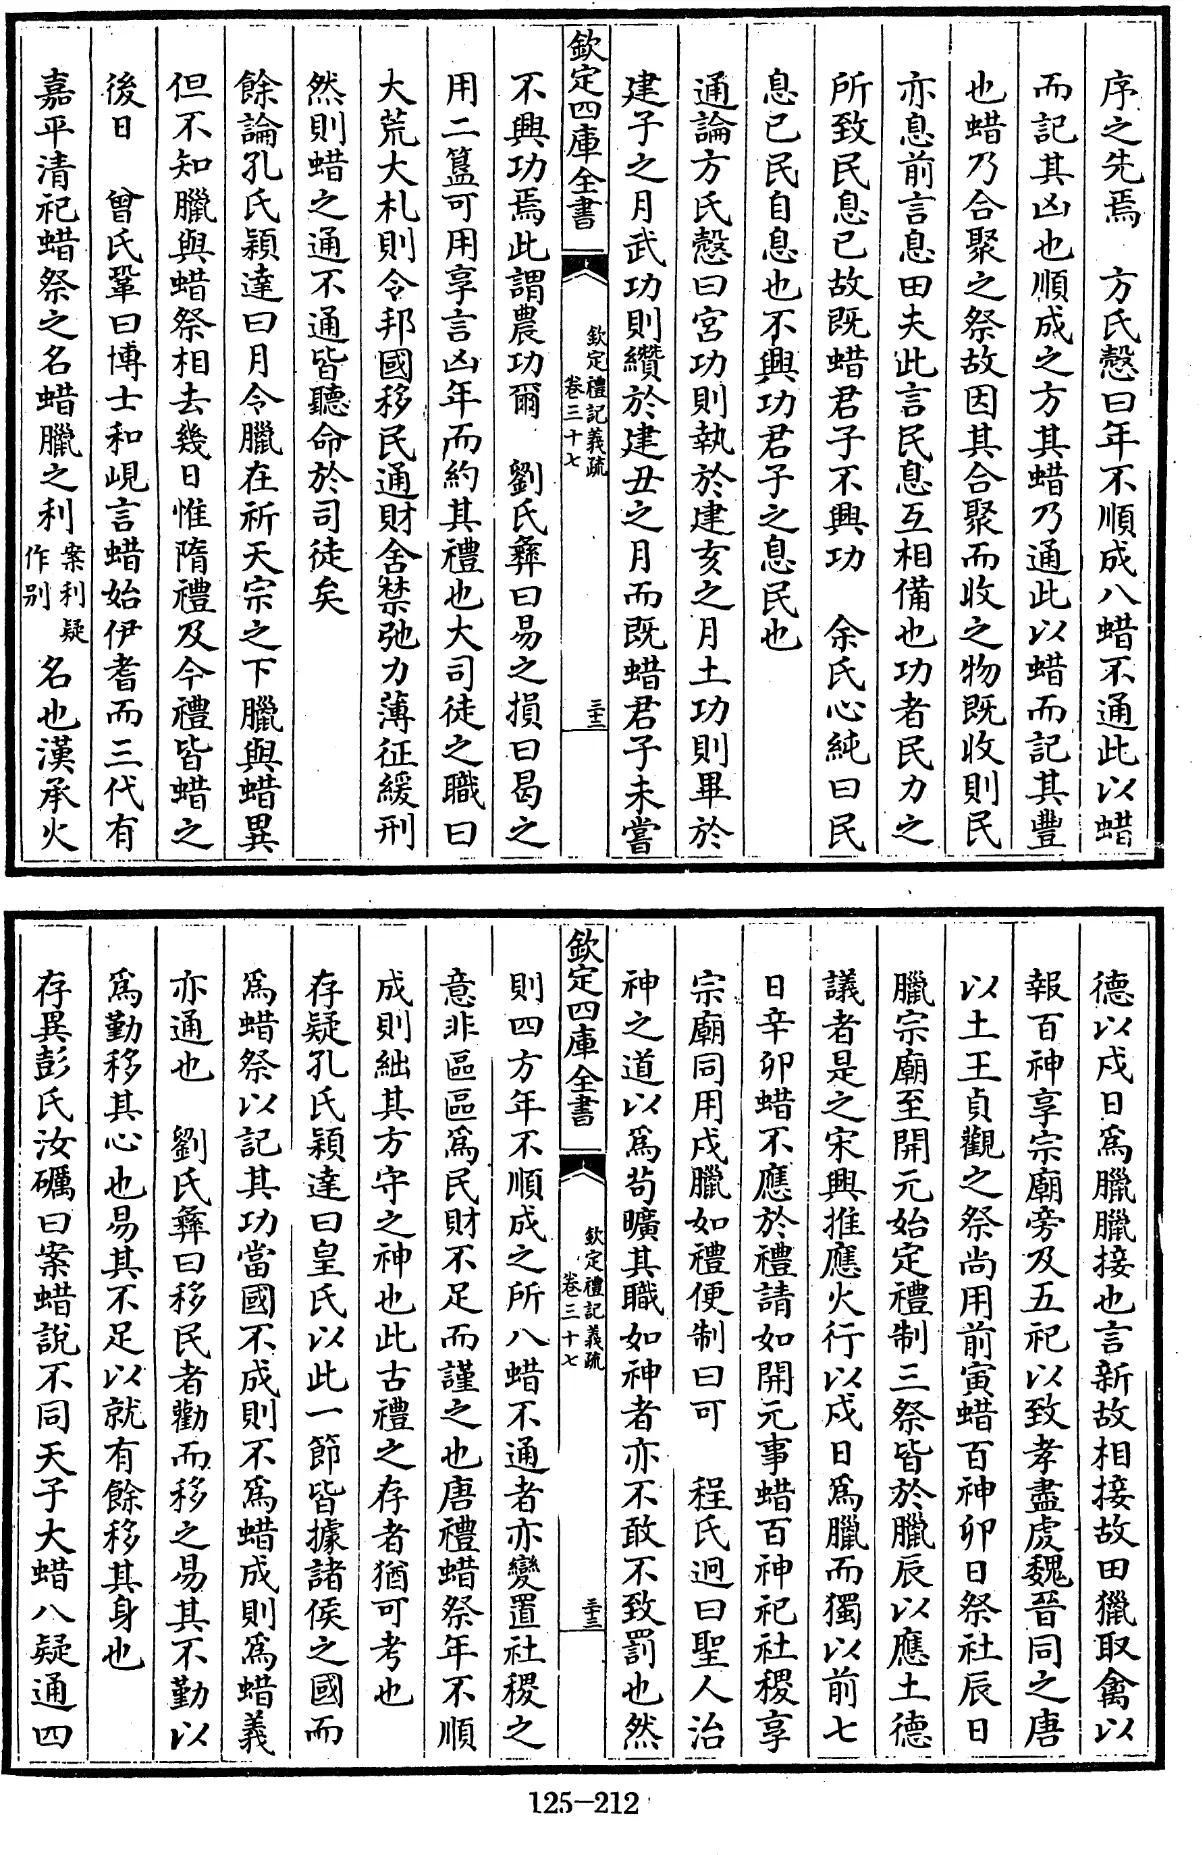 序之先焉　方氏慤曰年不順成八蜡不通此以蜡
而記其凶也順成之方其蜡乃通此以蜡而記其豐
也蜡乃合聚之祭故因其合聚而收之物既收則民
亦息前言息田夫此言民息互相備也功者民力之
所致民息已故既蜡君子不興功　余氏心純曰民
息已民自息也不興功君子之息民也
通論方氏慤曰宮功則執於建亥之月土功則畢於
建子之月武功則纘於建丑之月而既蜡君子未嘗
欽定四庫全書
欽定禮記義疏
卷三十七
三十二
不興功焉此謂農功爾　劉氏彝曰易之損曰曷之
用二簋可用享言凶年而約其禮也大司徒之職曰
大荒大札則令邦國移民通財舍禁弛力薄征緩刑
然則蜡之通不通皆聽命於司徒矣
餘論孔氏穎達曰月令臘在祈天宗之下臘與蜡異
但不知臘與蜡祭相去幾日惟隋禮及今禮皆蜡之
後日　曾氏鞏曰博士和峴言蜡始伊耆而三代有
嘉平清祀蜡祭之名蜡臘之利案利疑作别名也漢承火
德以戌日為臘臘接也言新故相接故田獵取禽以
報百神享宗廟旁及五祀以致孝盡虔魏晉同之唐
以土王貞觀之祭尚用前寅蜡百神卯日祭社辰日
臘宗廟至開元始定禮制三祭皆於臘辰以應土德
議者是之宋興推應火行以戌日為臘而獨以前七
日辛卯蜡不應於禮請如開元事蜡百神祀社稷享
宗廟同用戌臘如禮便制曰可　程氏迥曰聖人治
神之道以為苟曠其職如神者亦不敢不致罰也然
欽定四庫全書
欽定禮記義疏
卷三十七
三十三
則四方年不順成之所八蜡不通者亦變置社稷之
意非區區為民財不足而謹之也唐禮蜡祭年不順
成則絀其方守之神也此古禮之存者猶可考也
存疑孔氏穎達曰皇氏以此一節皆據諸侯之國而
為蜡祭以記其功當國不成則不為蜡成則為蜡義
亦通也　劉氏彝曰移民者勸而移之易其不勤以
為勤移其心也易其不足以就有餘移其身也
存異彭氏汝礪曰案蜡說不同天子大蜡八疑通四
125-212